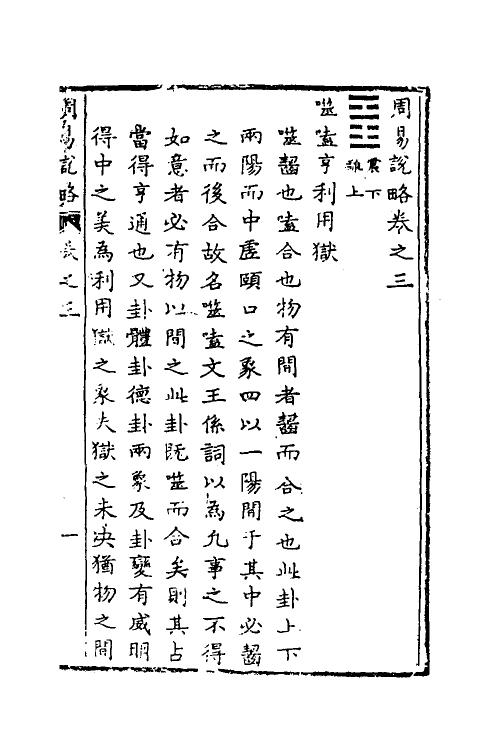 周易說略卷之三
震下
離上
噬嗑亨利用獄
噬齧也嗑合也物有間者齧而合之也此卦上下
兩陽而中虛頤口之象四以一陽間于其中必齧
之而後合故名噬嗑文王係詞以為凡事之不得
如意者必有物以間之此卦旣噬而合矣則其占
當得亨通也又卦體卦德卦兩象及卦變有威明
得中之美為利用獄之象夫獄之未決猶物之間
周易說略
卷之三
一